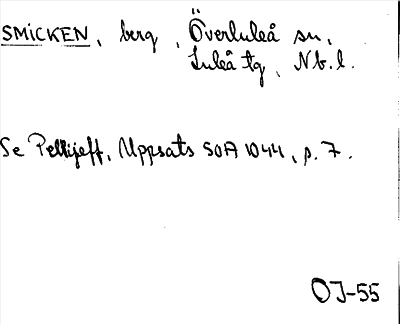 SMICKEN, berg, Överluleå sn,
Luleå tg, Nb. l.
Se Pellijeff, Uppsats SOA 1044, p. 7.
OJ-55